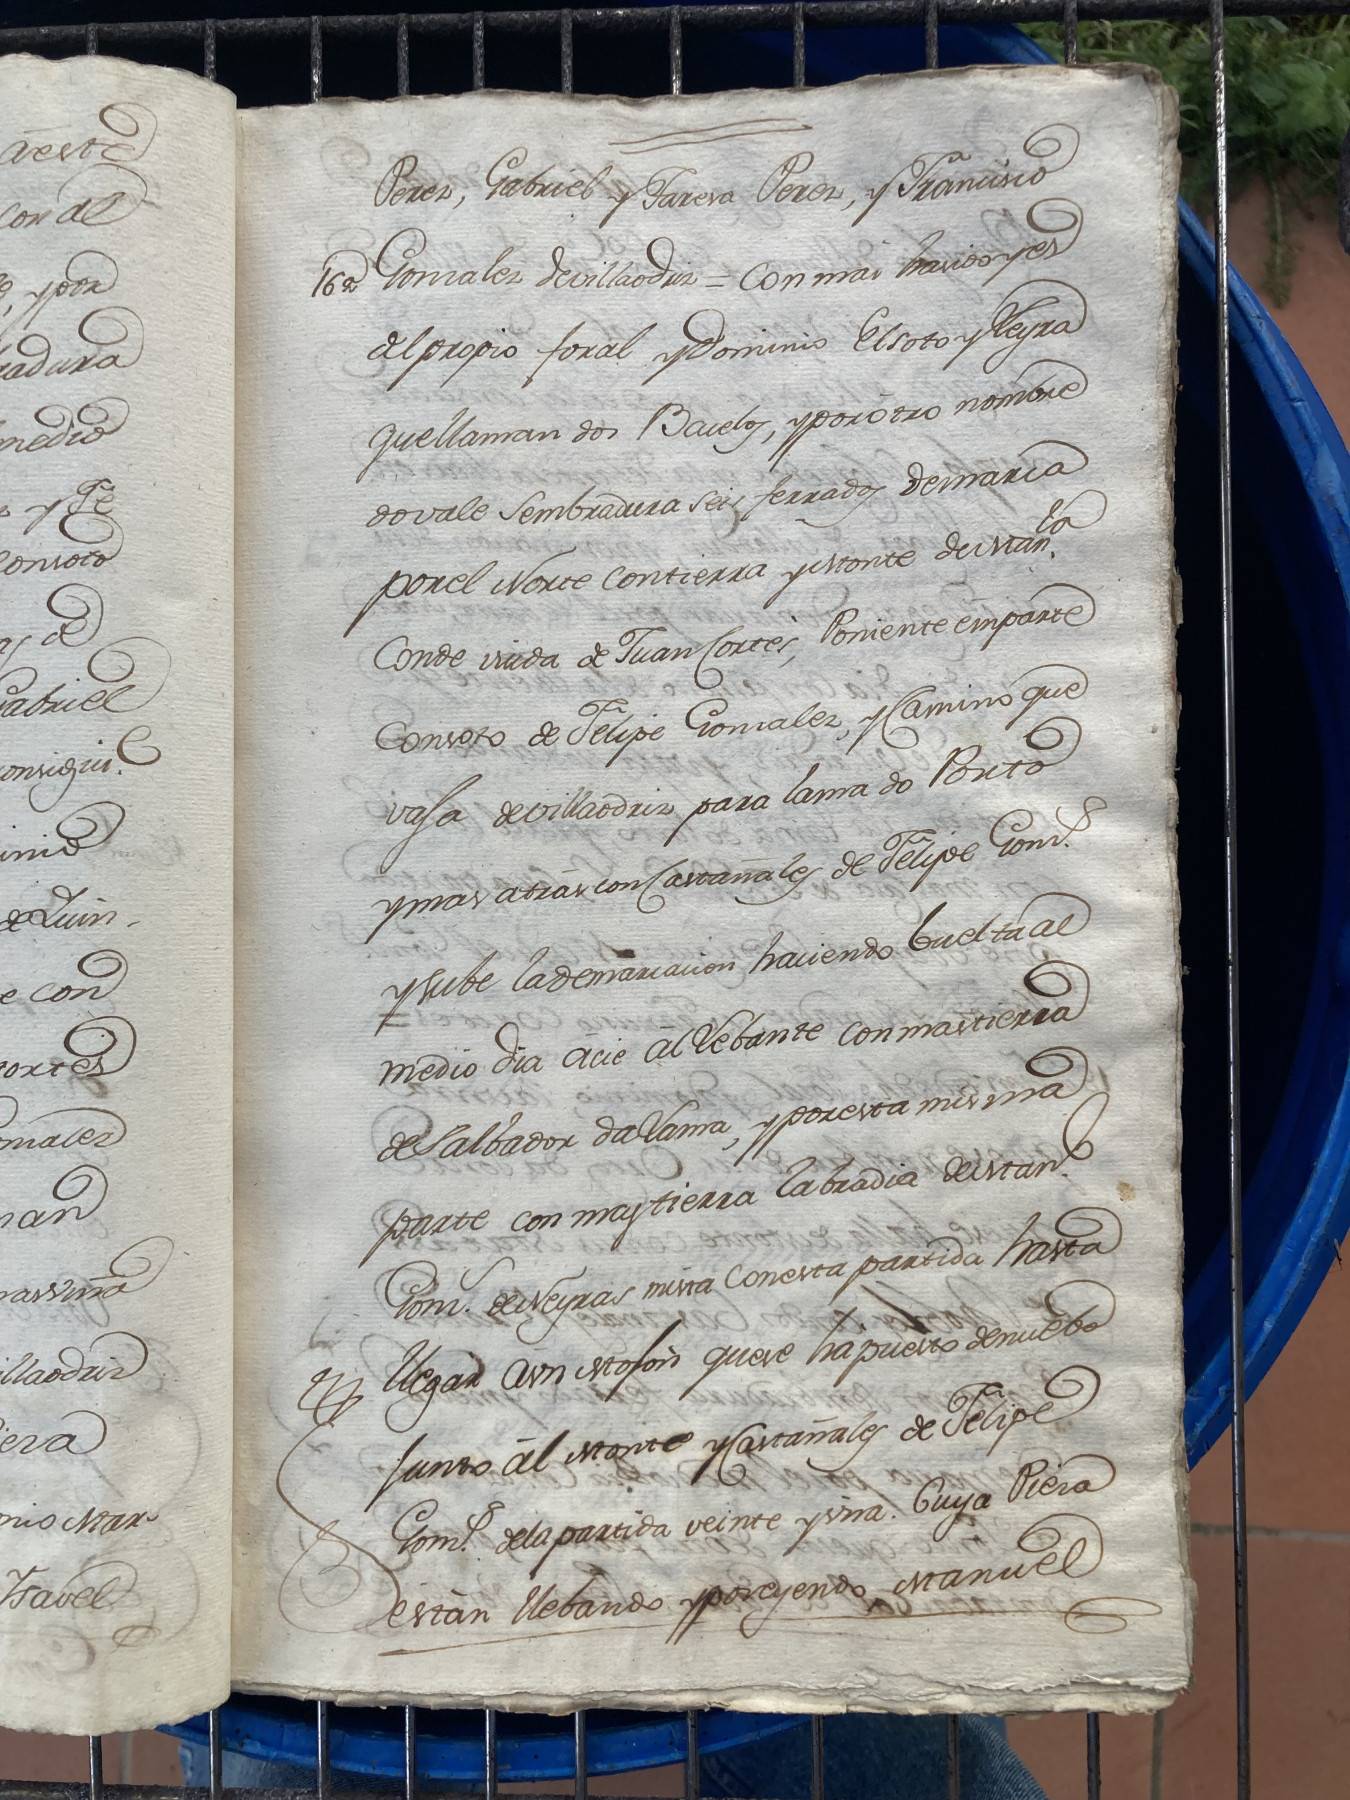 aeste
con al
, ypor
radura
medio
s y Fe
Consoto
as de
Gabriel
Consigui.e
inio
de Quin-
e con
Cortes
Gonzalez
man
massima
illaodriz
Piera
nio Mar-
Ysavel
Perez, Gabriel y Taresa Perez, y Francisco
162 Gonzalez devillaodriz = Con mai havido yes
del propio foral y Dominio El soto y Leyra
que llaman dos Bacelos, y por ôtro nombre
do vale sembradura seis ferrados demarca
por el Norte con tierra y Monte de Man.la
Conde viuda de Juan Cortes, Poniente êmparte
Consoto de Felipe Gonzalez, y Camino que
vasa devillaodriz para lama do Porto
y mas atrás con Castañales de Felipe Gonz.s
y sube la demarcacion haciendo buelta al
medio dia âcie âl Lebante con mas tierra
de Salbador da Lama, y por esta misma
parte con mas tierra labradia de Man.l
Gonz.s de Neyras mista con esta partida hasta
llegar âun Mojon que se ha puesto de nuebo
junto âl Monte y Castañales de Felipe
Gonz.s de la partida veinte y una. Cuya Pieza
están llebando y poseyendo Manuel